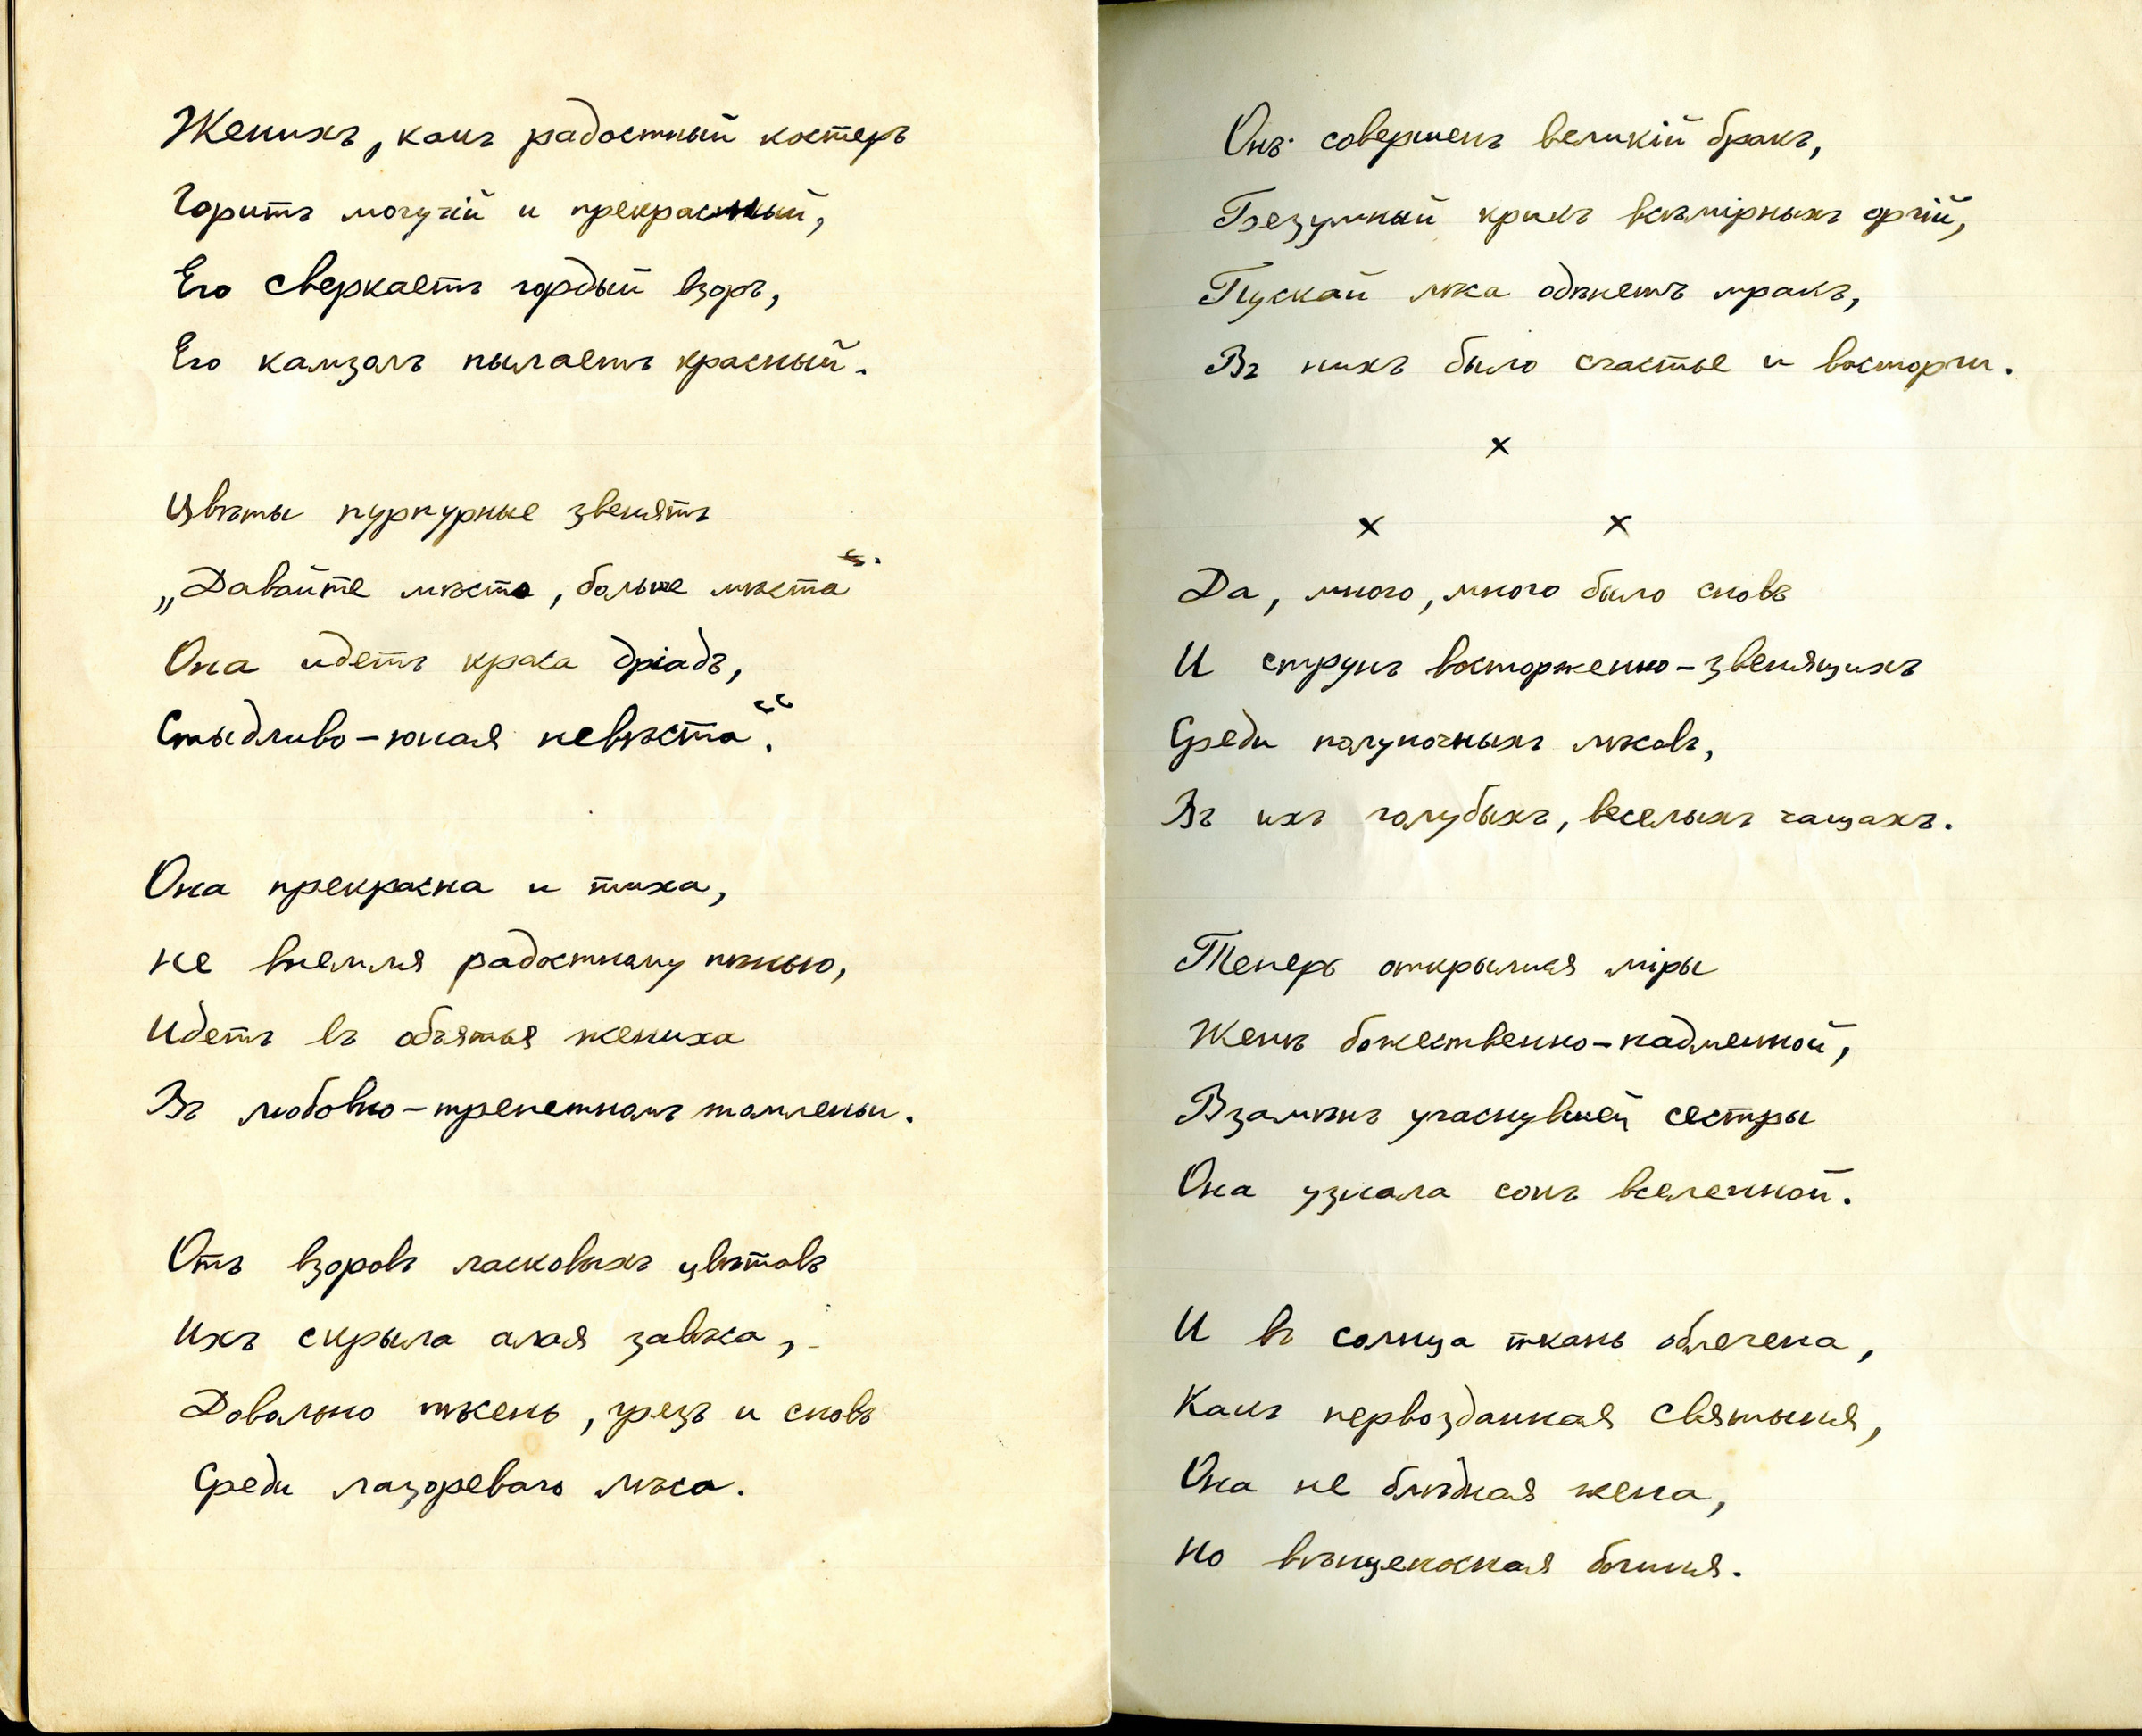 Женихъ, какъ радостный костеръ
Горитъ могучій и прекрасный,
Его сверкаетъ гордый взоръ,
Его камзолъ пылаетъ красный.
Цвѣты пурпурные звенятъ
„Давайте мѣста, больше мѣста
Она идетъ краса дріадъ,
Стыдливо-юная невѣста“.
Она прекрасна и тиха,
Не внемля радостному пѣнью,
Идетъ въ объятья жениха
Въ любовно-трепетномъ томленьи.
Отъ взоровъ ласковыхъ цвѣтовъ
Ихъ скрыла алая завѣса,
Довольно пѣсенъ, грезъ и сновъ
Среди лазореваго лѣса.
Онъ совершенъ великій бракъ,
Безумный крикъ всемірныхъ оргій,
Пускай лѣса одѣнетъ мракъ,
Въ нихъ было счастье и восторги.
x
x x
Да, много, много было сновъ
И струнъ восторженно-звенящихъ
Среди полуночныхъ лѣсовъ,
Въ ихъ голубыхъ, веселыхъ чащахъ.
Теперь открылися міры
Женѣ божественно-надменной,
Взамѣнъ угаснувшей сестры
Она узнала сонъ вселенной.
И въ солнца ткань облечена,
Какъ первозданная святыня,
Она не блѣдная жена,
Но вѣнценосная богиня.